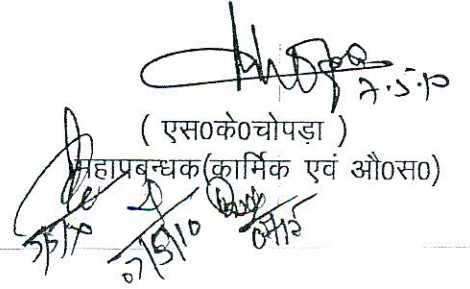 7.5.10
( एस0के0चोपड़ा )
महाप्रबन्धक(कार्मिक एवं औ0स0)
07/5/10